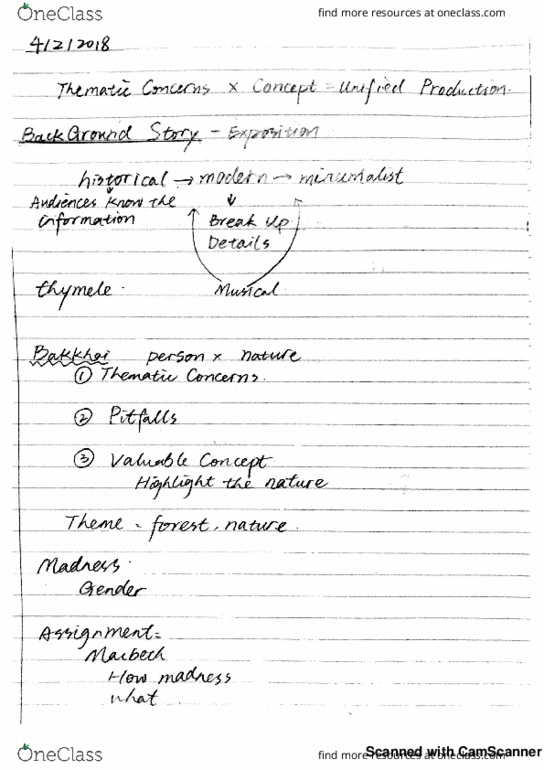 OneClass find more resources at oneclass.com
4/2/2018
Thematic Concerns x Concept = Unified Production.
BackGround Story - Exposition
historical → modern → minimalist
Audiences know the ↓
information Break up
Details
thymele. Musical
Bakkhai person x nature
① Thematic Concerns.
② Pitfalls
③ Valuable Concept
Highlight the nature
Theme - forest, nature.
Madness.
Gender
Assignment:
Macbech
How madness
what
OneClass find more resources at oneclass.com
Scanned with CamScanner